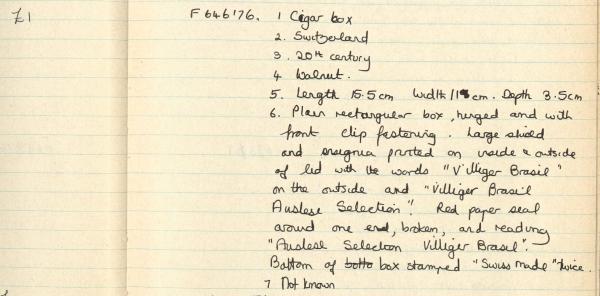 £1 F646'76. 1 Cigar box
2. Switzerland
3. 20th century
4 Walnut.
5. Length 15.5cm Width 11 cm. Depth 3.5cm
6. Plain rectangular box, hinged and with
front clip fastening. Large shield
and insignia printed on inside & outside
of lid with the words "Villiger Brasil"
on the outside and "Villiger Brasil
Auslese Selection". Red paper seal
around one end, broken, and reading
"Auslese Selection Villiger Brasil".
Bottom of botto box stamped "Swiss made" twice.
7 Not known